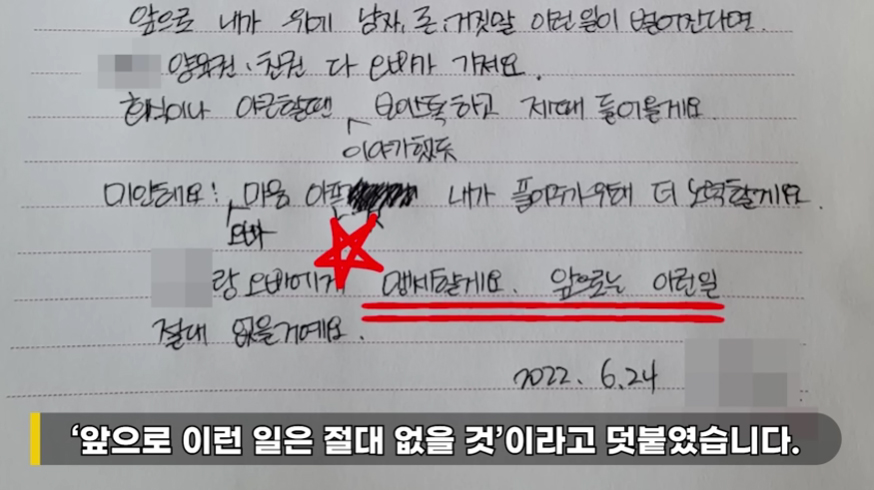 앞으로 내가 남자, 돈, 거짓말 이런일이 벌어진다면
양육권, 친권 다 오빠가 가져요.
회식이나 야근할땐 하고 제때 들어올게요
이야기했듯
미안해요! 마음 아프 내가 더 노력할게요.
오빠
랑 오빠에게 맹세할게요. 앞으로는 이런일
절대 없을거에요.
2022. 6.24
‘앞으로 이런 일은 절대 없을 것’이라고 덧붙였습니다.